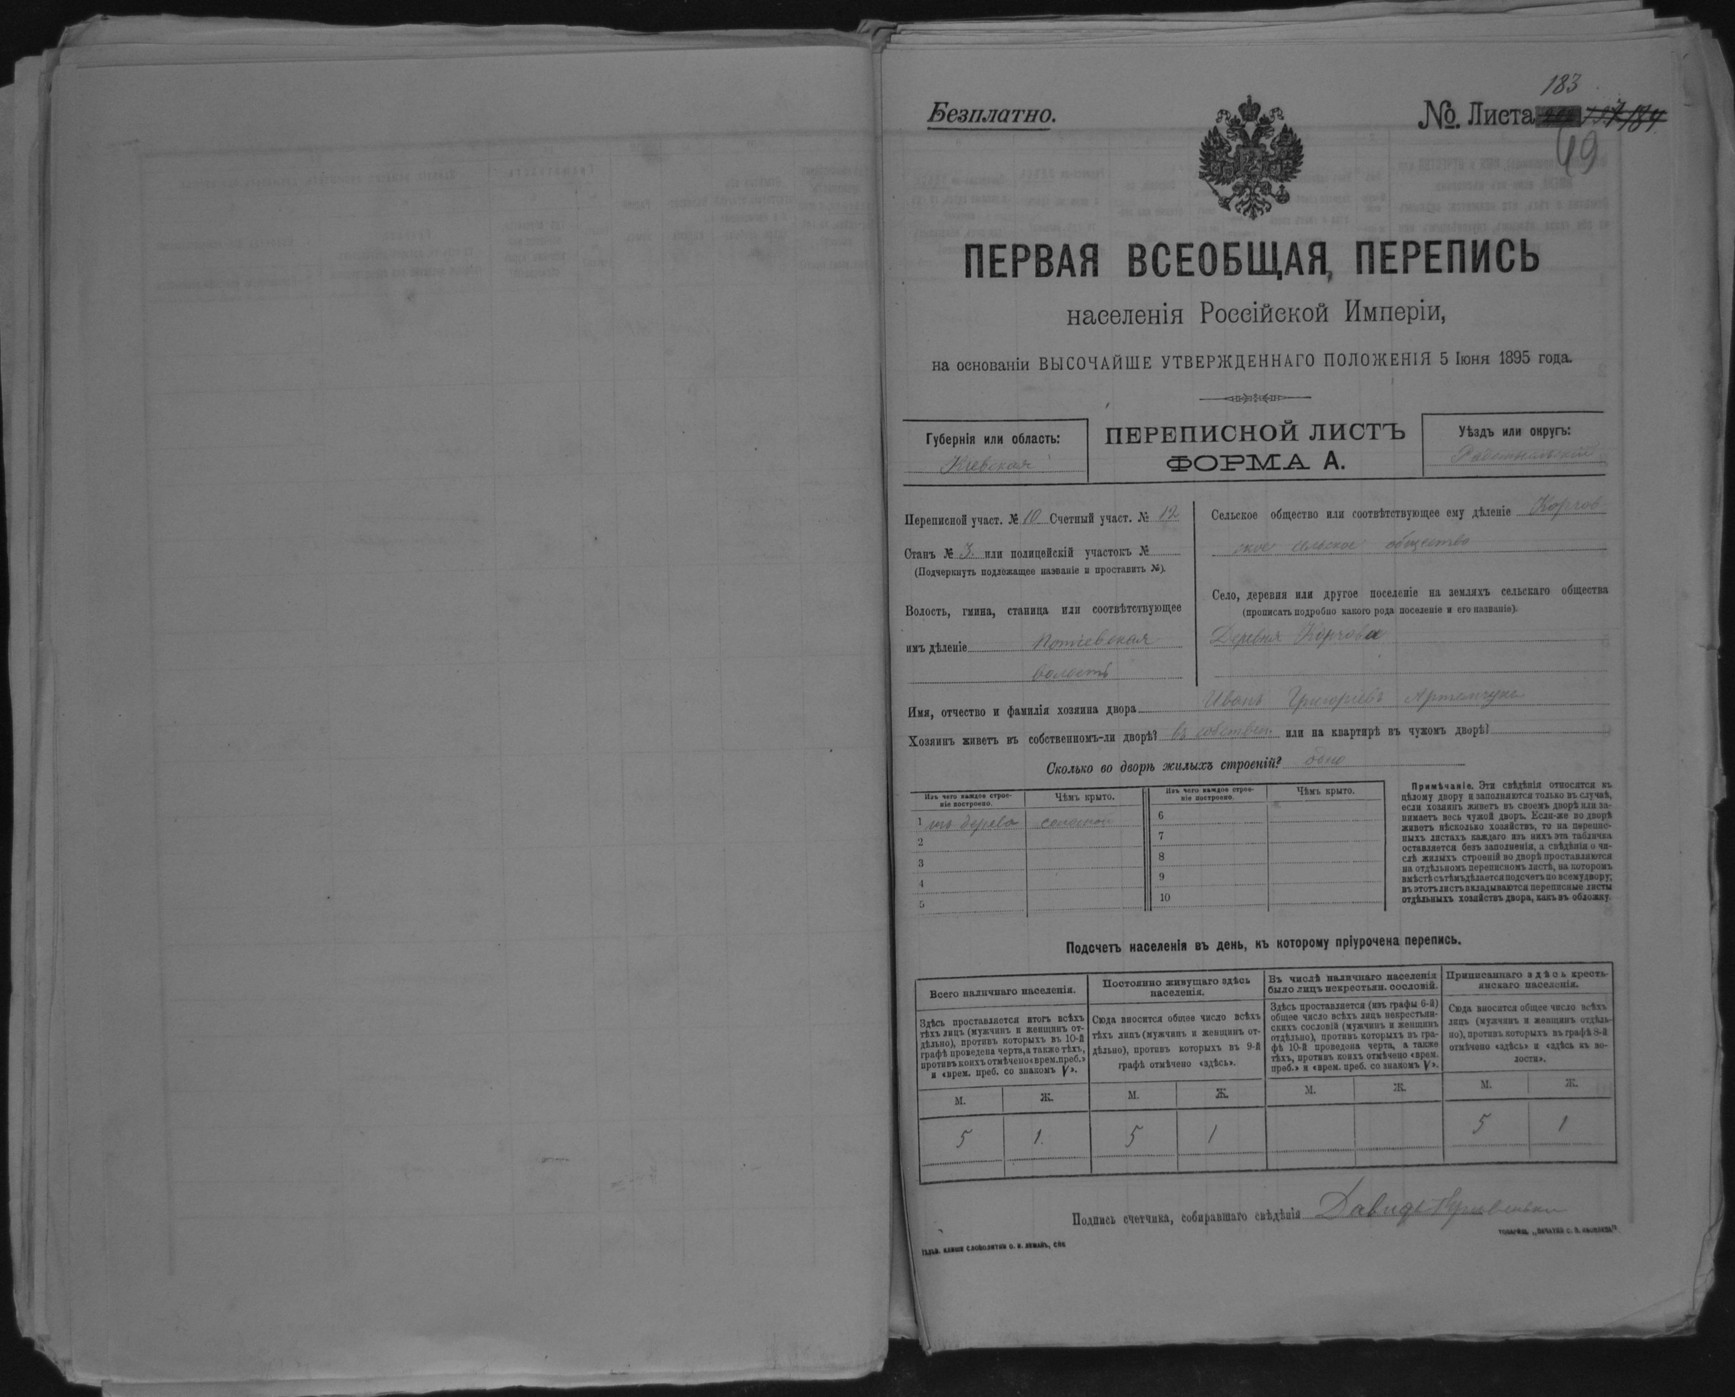 183
Безплатно.
№. Листа
49
ПЕРВАЯ ВСЕОБЩАЯ, ПЕРЕПИСЬ
населенія Россійской Имперіи,
на основаніи ВЫСОЧАЙШЕ УТВЕРЖДЕННАГО ПОЛОЖЕНІЯ 5 Іюня 1895 года.
Губернія или область:
Кіевская
ПЕРЕПИСНОЙ ЛИСТЪ
ФОРМА А.
Уѣздъ или округъ:
Радомысльскій
Переписной участ. № 10 Счетный участ. № 12
Станъ № 3. или полицейскій участокъ №
(Подчеркнуть подлежащее названіе и проставить №).
Волость, гмина, станица или соотвѣтствующее
имъ дѣленіе Потіевская
волость
Сельское общество или соотвѣтствующее ему дѣленіе Корчов
ское сельское общество
Село, деревня или другое поселеніе на земляхъ сельскаго общества
(прописать подробно какого рода поселеніе и его названіе).
Деревня Корчова
Имя, отчество и фамилія хозяина двора Иванъ Григорьевъ Артемчукъ
Хозяинъ живетъ въ собственномъ-ли дворѣ? въ собствен. или на квартирѣ въ чужомъ дворѣ?
Сколько во дворѣ жилыхъ строеній? одно
Изъ чего каждое строе-
ніе построено.
Чѣмъ крыто.
Изъ чего каждое строе-
ніе построено.
Чѣмъ крыто.
1 изъ дерева соломой
2
3
4
5
6
7
8
9
10
Примѣчаніе. Эти свѣдѣнія относятся къ
цѣлому двору и заполняются только въ случаѣ,
если хозяинъ живетъ въ своемъ дворѣ или за-
нимаетъ весь чужой дворъ. Если-же во дворѣ
живетъ нѣсколько хозяйствъ, то на перепис-
ныхъ листахъ каждаго изъ нихъ эта табличка
оставляется безъ заполненія, а свѣдѣнія о чи-
слѣ жилыхъ строеній во дворѣ проставляются
на отдѣльномъ переписномъ листѣ, на которомъ
вмѣстѣ съ тѣмъ дѣлается подсчетъ по всему двору;
въ этотъ листъ вкладываются переписные листы
отдѣльныхъ хозяйствъ двора, какъ въ обложку.
Подсчетъ населенія въ день, къ которому пріурочена перепись.
Всего наличнаго населенія.
Здѣсь проставляется итогъ всѣхъ
тѣхъ лицъ (мужчинъ и женщинъ от-
дѣльно), противъ которыхъ въ 10-й
графѣ проведена черта, а также тѣхъ,
противъ коихъ отмѣчено «врем. преб.»
и «врем. преб. со знакомъ V».
Постоянно живущаго здѣсь
населенія.
Сюда вносится общее число всѣхъ
тѣхъ лицъ (мужчинъ и женщинъ от-
дѣльно), противъ которыхъ въ 9-й
графѣ отмѣчено «здѣсь».
Въ числѣ наличнаго населенія
было лицъ некрестьян. сословій.
Здѣсь проставляется (изъ графы 6-й)
общее число всѣхъ лицъ некрестьян-
скихъ сословій (мужчинъ и женщинъ
отдѣльно), противъ которыхъ въ гра-
фѣ 10-й проведена черта, а также
тѣхъ, противъ коихъ отмѣчено «врем.
преб.» и «врем. преб. со знакомъ V».
Приписаннаго здѣсь кресть-
янскаго населенія.
Сюда вносится общее число всѣхъ
лицъ (мужчинъ и женщинъ отдѣль-
но), противъ которыхъ въ графѣ 8-й
отмѣчено «здѣсь» и «здѣсь въ во-
лости».
М. Ж. М. Ж. М. Ж. М. Ж.
5 1. 5 1 5 1
Подпись счетчика, собиравшаго свѣдѣнія Давидъ